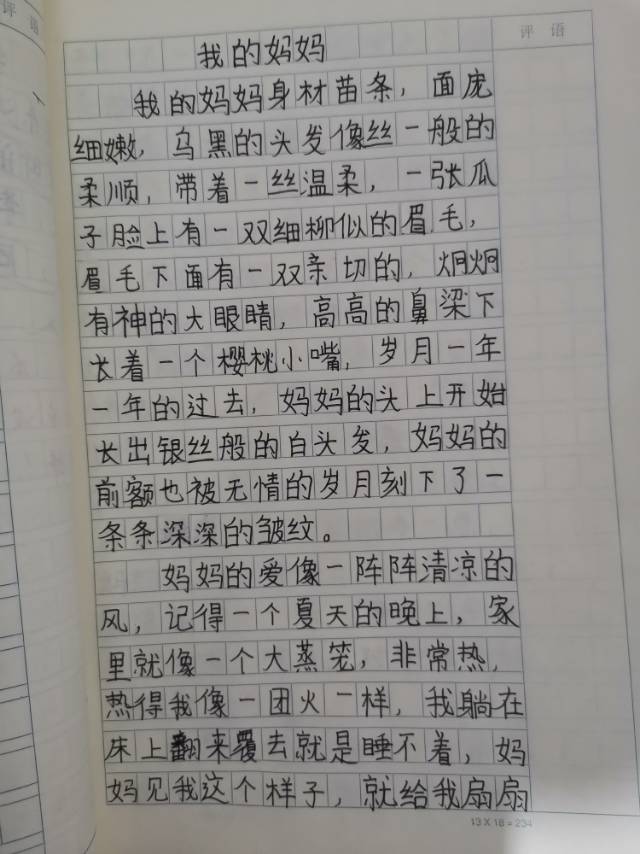 评语
我的妈妈
我的妈妈身材苗条，面庞
细嫩，乌黑的头发像丝一般的
柔顺，带着一丝温柔，一张瓜
子脸上有一双细柳似的眉毛，
眉毛下面有一双亲切的，炯炯
有神的大眼睛，高高的鼻梁下
长着一个樱桃小嘴，岁月一年
一年的过去，妈妈的头上开始
长出银丝般的白头发，妈妈的
前额也被无情的岁月刻下了一
条条深深的皱纹。
妈妈的爱像一阵阵清凉的
风，记得一个夏天的晚上，家
里就像一个大蒸笼，非常热，
热得我像一团火一样，我躺在
床上翻来覆去就是睡不着，妈
妈见我这个样子，就给我扇扇
13×18=234